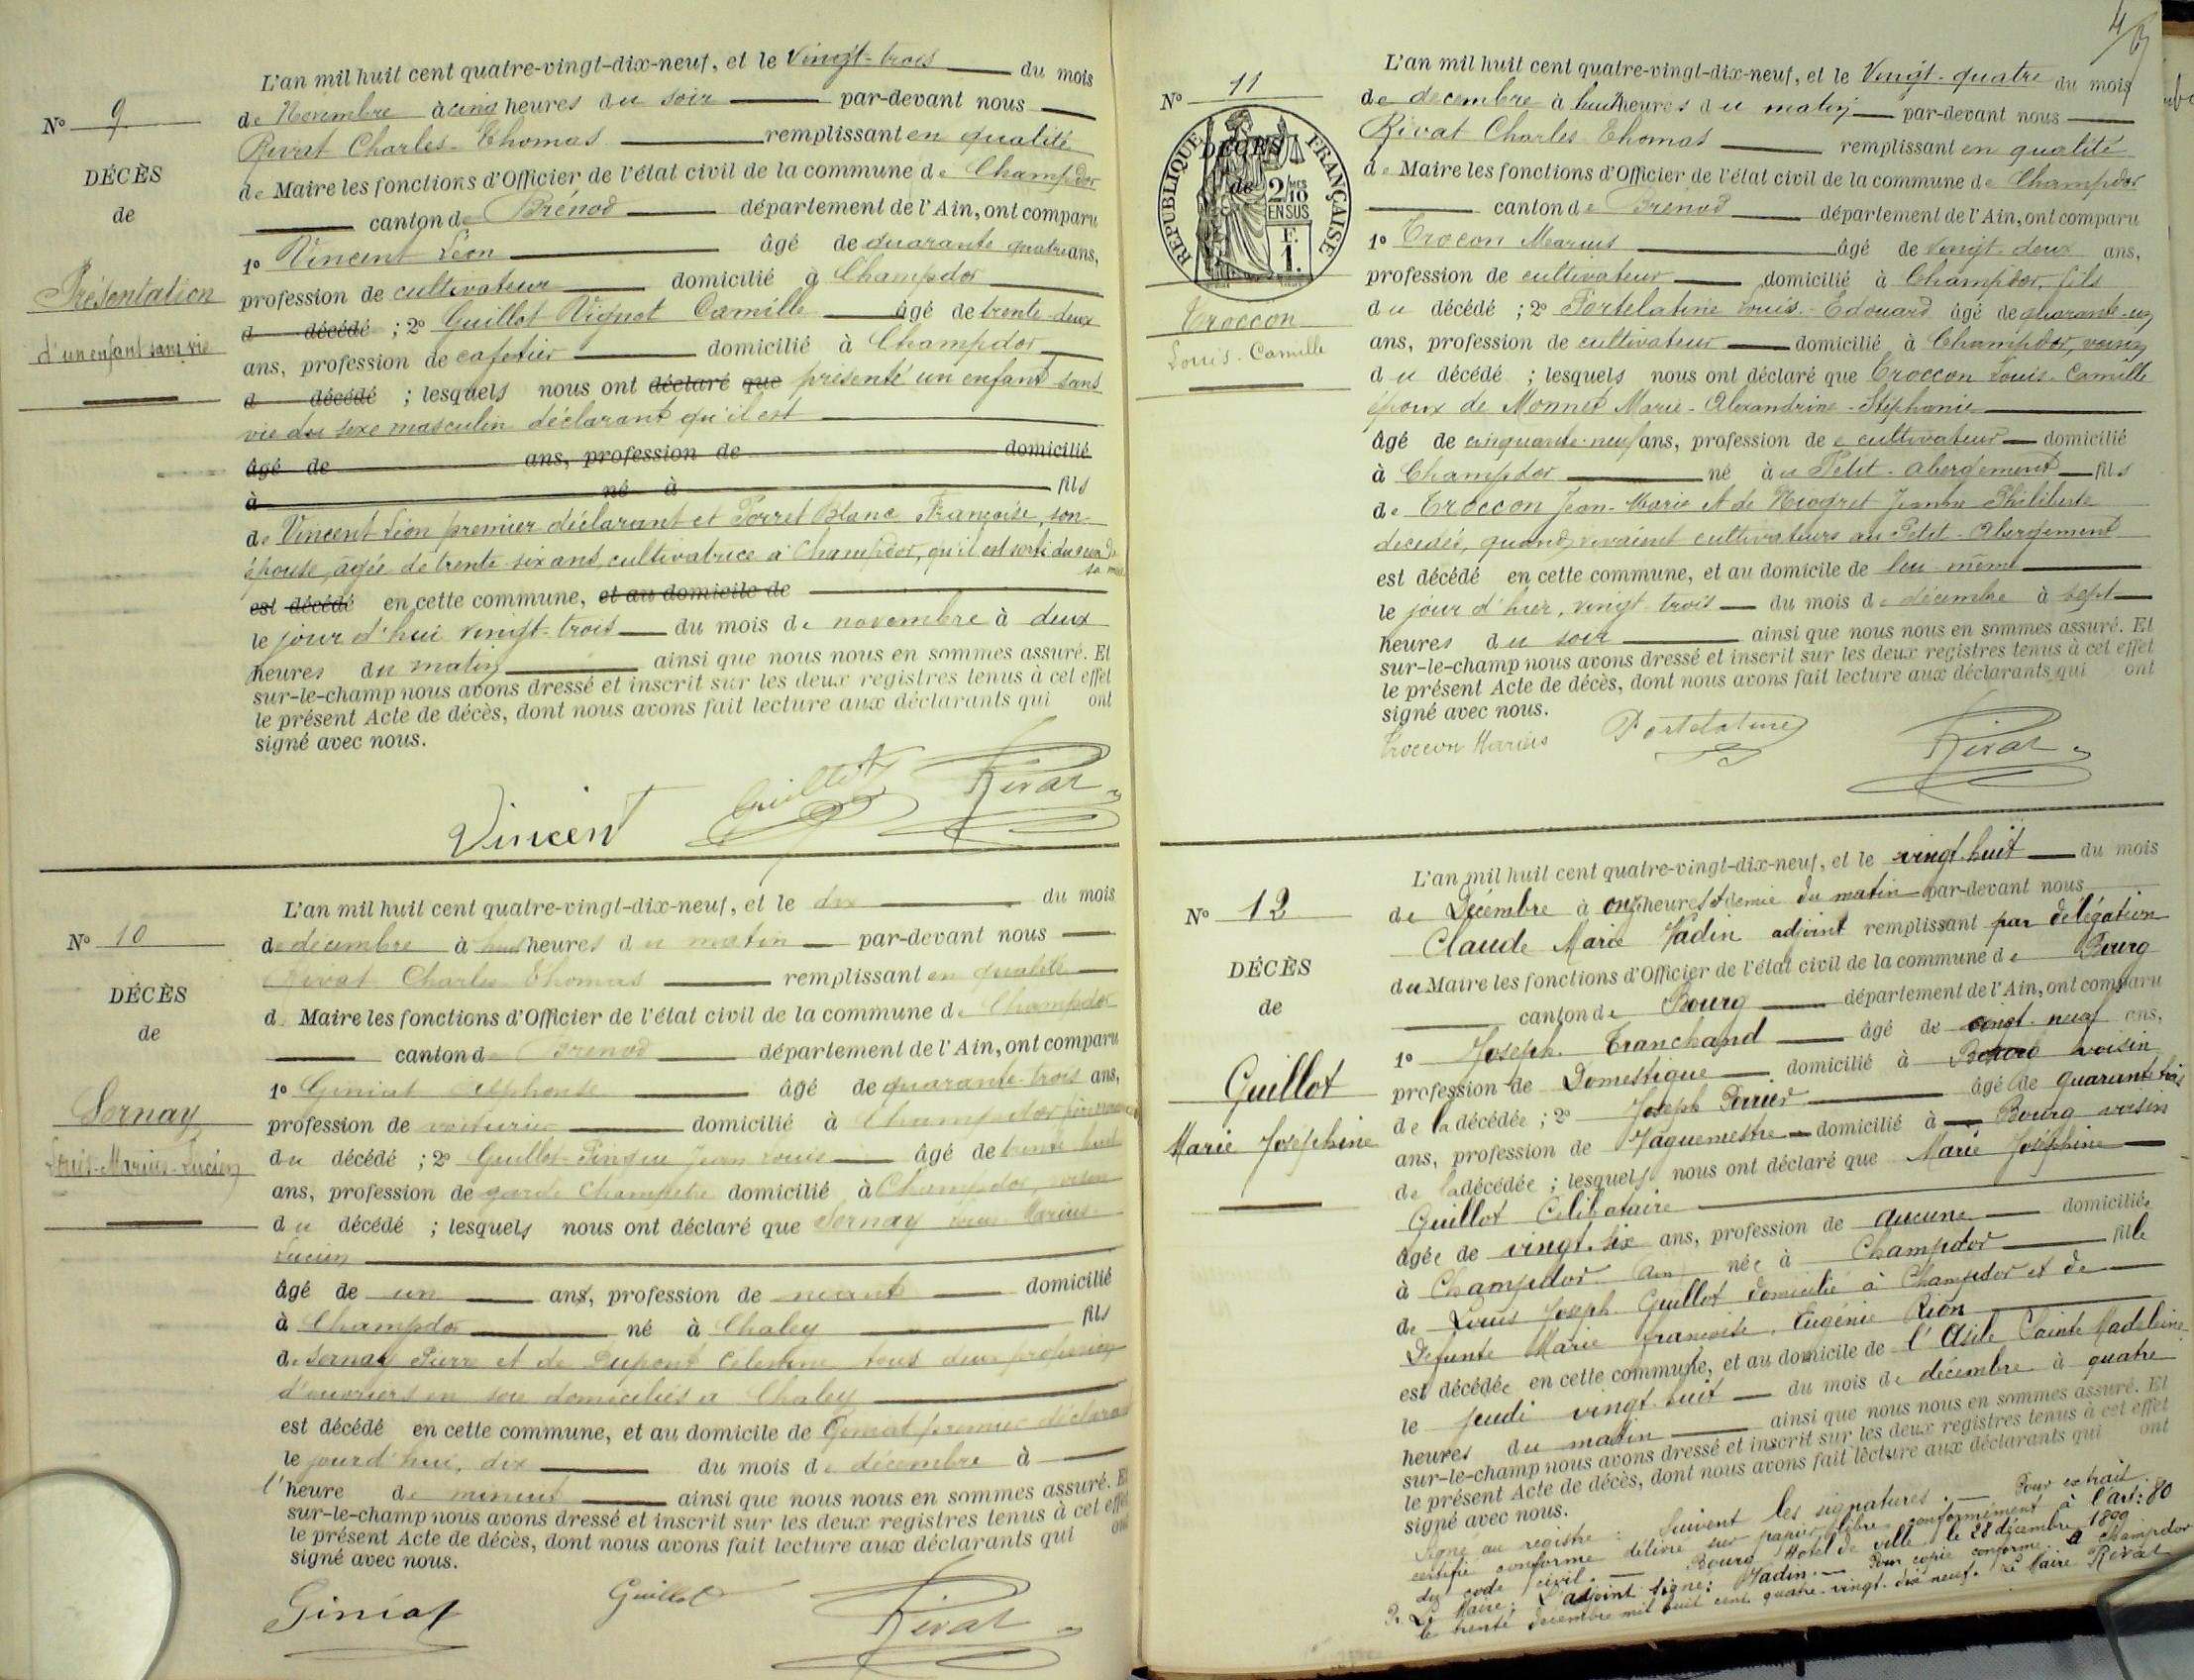 L'an mil huit cent quatre-vingt-dix-neuf, et le Vingt-trois du mois
de Novembre à cinq heures du soir par-devant nous
Rivat Charles-Thomas remplissant en qualité
de Maire les fonctions d'Officier de l'état civil de la commune de Champdor
canton de Brénod département de l'Ain, ont comparu
1° Vincent Léon âgé de quarante quatre ans,
profession de cultivateur domicilié à Champdor
d décédé ; 2° Guillot Vignot Camille âgé de trente-deux
ans, profession de cafetier domicilié à Champdor
d décédé ; lesquels nous ont déclaré que présenté un enfant sans
vie du sexe masculin déclarant qu'il est
âgé de ans, profession de domicilié
à né à fils
de Vincent Léon premier déclarant et Porret Blanc Françoise, son
épouse, âgée de trente-six ans, cultivatrice à Champdor, qu'il est sorti du sein de
sa mère
est décédé en cette commune, et au domicile de
le jour d'hui vingt-trois du mois de novembre à deux
heures du matin ainsi que nous nous en sommes assuré. Et
sur-le-champ nous avons dressé et inscrit sur les deux registres tenus à cet effet
le présent Acte de décès, dont nous avons fait lecture aux déclarants qui ont
signé avec nous.
Vincent Guillot Rivat
N° 9
DÉCÈS
de
Présentation
d'un enfant sans vie
L'an mil huit cent quatre-vingt-dix-neuf, et le dix du mois
de décembre à huit heures du matin par-devant nous
Rivat Charles Thomas remplissant en qualité
d Maire les fonctions d'Officier de l'état civil de la commune de Champdor
canton de Brénod département de l'Ain, ont comparu
1° Giniat Alphonse âgé de quarante-trois ans,
profession de voiturier domicilié à Champdor
du décédé ; 2° Guillot-Pingeu Jean Louis âgé de trente huit
ans, profession de garde champêtre domicilié à Champdor, voisin
du décédé ; lesquels nous ont déclaré que Sornay Louis Marius-
Lucien
âgé de un ans, profession de néant domicilié
à Champdor né à Chaley fils
de Sornay Pierre et de Dupont Célestine tous deux profession
d'ouvriers en soie domiciliés à Chaley
est décédé en cette commune, et au domicile de Giniat premier déclarant
le jour d'hui, dix du mois de décembre à
l'heure de minuit ainsi que nous nous en sommes assuré. Et
sur-le-champ nous avons dressé et inscrit sur les deux registres tenus à cet effet
le présent Acte de décès, dont nous avons fait lecture aux déclarants qui ont
signé avec nous.
Giniat Guillot Rivat
N° 10
DÉCÈS
de
Sornay
Louis-Marius-Lucien
L'an mil huit cent quatre-vingt-dix-neuf, et le Vingt-quatre du mois
de decembre à huit heures du matin par-devant nous
Rivat Charles Thomas remplissant en qualité
de Maire les fonctions d'Officier de l'état civil de la commune de Champdor
canton de Brénod département de l'Ain, ont comparu
1° Trocon Marius âgé de vingt-deux ans,
profession de cultivateur domicilié à Champdor, fils
du décédé ; 2° Portelatine Louis-Edouard âgé de quarante-un
ans, profession de cultivateur domicilié à Champdor, voisin
du décédé ; lesquels nous ont déclaré que Troccon Louis-Camille
époux de Monnet Marie-Alexandrine-Stéphanie
âgé de cinquante-neuf ans, profession de cultivateur domicilié
à Champdor né au Petit-Abergement fils
de Troccon Jean-Marie et de Niogret Jeanne Philiberte
decedés, quand vivaient cultivateurs au Petit-Abergement
est décédé en cette commune, et au domicile de lui-même
le jour d'hier, vingt-trois du mois de décembre à sept
heures du soir ainsi que nous nous en sommes assuré. Et
sur-le-champ nous avons dressé et inscrit sur les deux registres tenus à cet effet
le présent Acte de décès, dont nous avons fait lecture aux déclarants qui ont
signé avec nous.
Troccon Marius Portelatine Rivat
N° 11
DÉCÈS
de
RÉPUBLIQUE FRANÇAISE
2/10 MES
EN SUS
F.
1.
Troccon
Louis-Camille
L'an mil huit cent quatre-vingt-dix-neuf, et le vingt-huit du mois
de Décembre à onze heures et demie du matin par-devant nous
Claude Marie Jadin adjoint remplissant par délégation
du Maire les fonctions d'Officier de l'état civil de la commune de Bourg
canton de Bourg département de l'Ain, ont comparu
1° Joseph Tranchand âgé de vingt-neuf ans,
profession de Domestique domicilié à Bourg voisin
de la décédée ; 2° Joseph Perrier âgé de quarante trois
ans, profession de Vaguemestre domicilié à Bourg voisin
de la décédée ; lesquels nous ont déclaré que Marie Joséphine
Guillot Célibataire
âgée de vingt-six ans, profession de aucune domiciliée
à Champdor Ain née à Champdor fille
de Louis Joseph Guillot domicilié à Champdor et de
Defunte Marie Françoise, Eugénie Rion
est décédée en cette commune, et au domicile de l'Asile Sainte Madeleine
le jeudi vingt-huit du mois de décembre à quatre
heures du matin ainsi que nous nous en sommes assuré. Et
sur-le-champ nous avons dressé et inscrit sur les deux registres tenus à cet effet
le présent Acte de décès, dont nous avons fait lecture aux déclarants qui ont
signé avec nous.
Signé au registre : Suivent les signatures. Pour extrait
certifié conforme délivré sur papier libre conformément à l'art: 80
du code civil. Bourg Hotel de ville le 28 décembre 1899
Le Maire: L'adjoint signé: Jadin. Pour copie conforme. A Champdor
le trente décembre mil huit cent quatre-vingt-dix neuf. Le Maire Rivat
N° 12
DÉCÈS
de
Guillot
Marie Joséphine